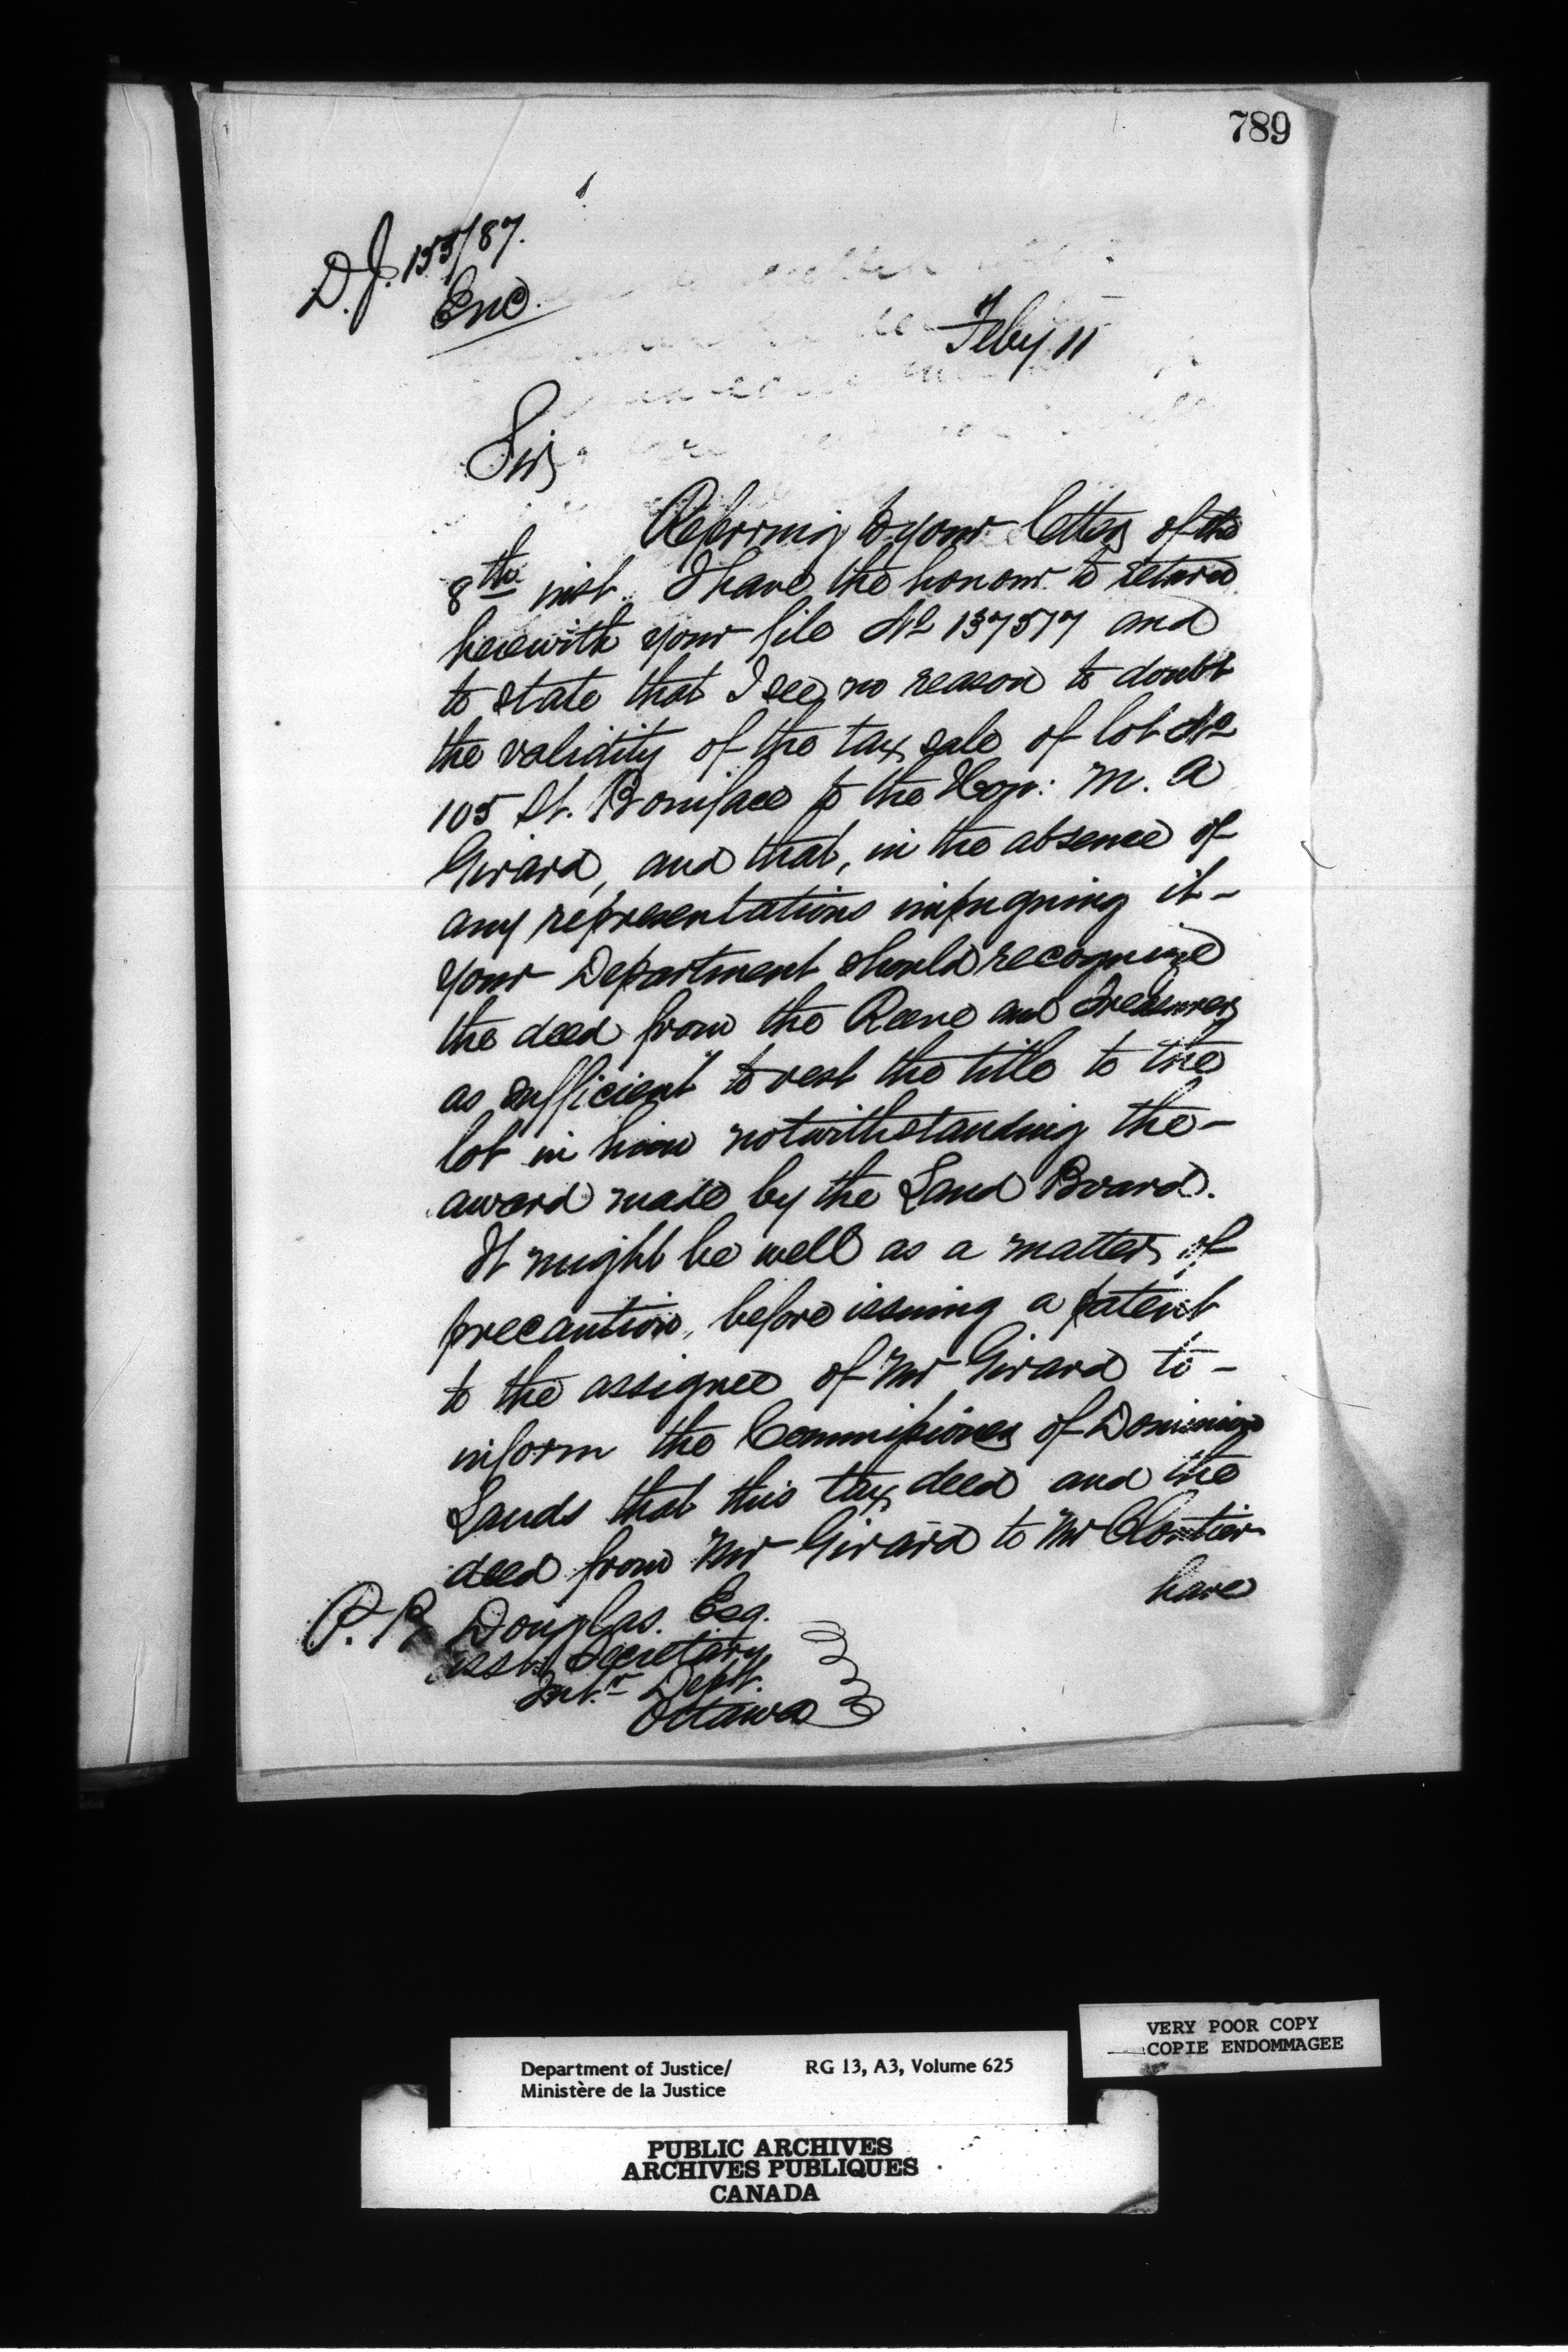 789
D.J. 155/87.
Enc.
Feby 11
Sir,
Referring to your letter of the
8th inst. I have the honour to return
herewith your file No 137517 and
to state that I see no reason to doubt
the validity of the tax sale of lot No
105 St. Boniface to the Hon: M. A
Girard, and that, in the absence of
any representations impugning it-
your Department should recognize
the deed from the Reeve and Treasurer
as sufficient to vest the title to the
lot in him notwithstanding the-
award made by the Land Board.
It might be well as a matter of
precaution, before issuing a patent
to the assignee of Mr Girard to-
inform the Commissioner of Dominion
Lands that this tax deed and the
deed from Mr Girard to Mr Cloutier
have
P. B Douglas. Esq.
Asst. Secretary
Intr Dept.
Ottawa
VERY POOR COPY
COPIE ENDOMMAGEE
Department of Justice/ RG 13, A3, Volume 625
Ministère de la Justice
PUBLIC ARCHIVES
ARCHIVES PUBLIQUES
CANADA